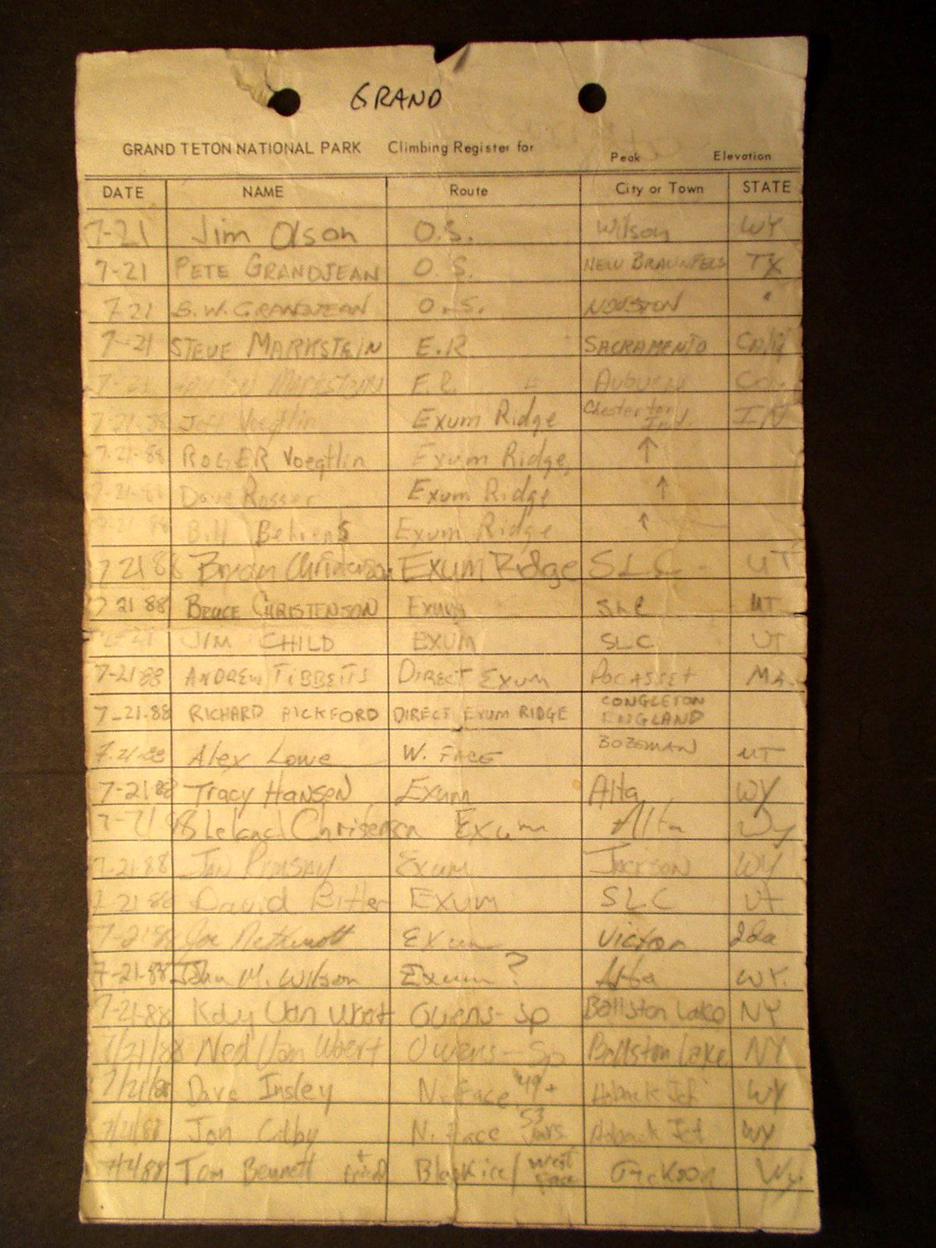 GRAND
GRAND TETON NATIONAL PARK Climbing Register for Peak Elevation
DATE NAME Route City or Town STATE
7-21 Jim Olson O.S. Wilson WY
7-21 PETE GRANDJEAN O.S. NEW BRAUNFELS TX
7-21 B.W. GRANDJEAN O.S. HOUSTON "
7-21 STEVE MARKSTEIN E.R SACRAMENTO
7-21 Markstein E.R. Auburn
7-21-88 Voegtlin Exum Ridge Chesterton Ind. IN
7-21-88 ROGER Voegtlin Exum Ridge, ↑
7-21-88 Dave Rosser Exum Ridge ↑
7-21 88 Bill Behrens Exum Ridge ↑
7 21 88 Bryan Christenson Exum Ridge SLC UT
7 21 88 BRUCE CHRISTENSON Exum SLC UT
7-21 JIM CHILD EXUM SLC UT
7-21-88 ANDREW TIBBETTS DIRECT EXUM POCASSET MA.
7-21-88 RICHARD PICKFORD DIRECT EXUM RIDGE CONGLETON ENGLAND
7-21-88 Alex Lowe W. FACE BOZEMAN MT
7-21-88 Tracy Hansen Exum Alta WY
Leland Christensen Exum Alta Wy
7-21-88 Exum JACKSON WY
7-21-88 David Bitter EXUM SLC UT
7-21-88 Joe Exum Victor Ida
7-21-88 John M. Wilson Exum? Alta WY.
7-21-88 Owens-Sp Ballston Lake NY
7/21/88 Ned Owens-Sp Ballston Lake NY
7/21/88 Dave Insley N. Face WY
Jon N. Face WY
Tom Bennett + Black ice/West Face Jackson Wy